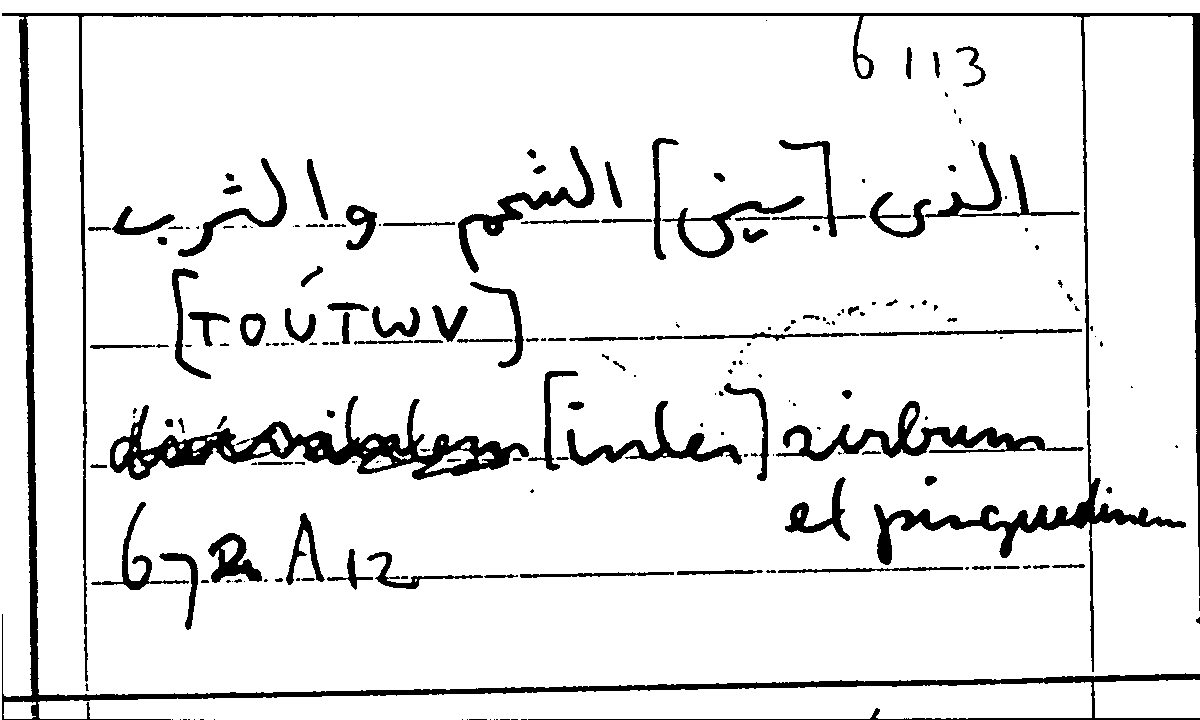 6113
الذى [بين] الشحم والثرب
[τούτων]
[inter] zirbum
et pinguedinem
672a A12